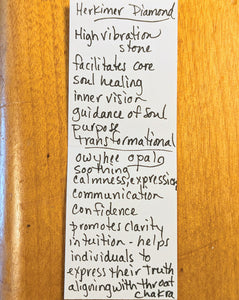 Herkimer Diamond
High vibration
stone
facilitates core
soul healing
inner vision
guidance of soul
purpose
transformational
owyhee opalo
soothing
calmness, expression
communication
confidence
promotes clarity
intuition - helps
individuals to
express their truth
aligning with throat
chakra